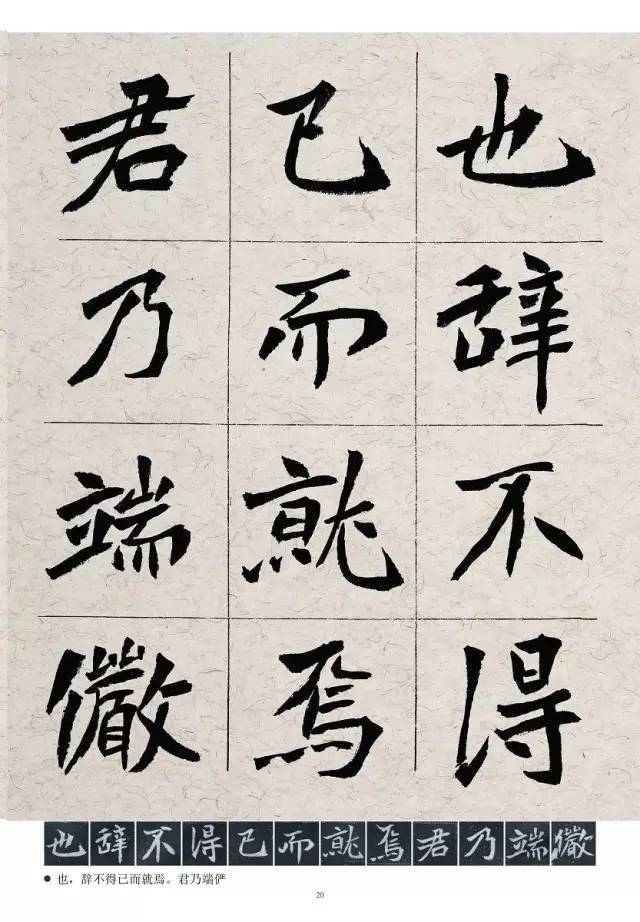 也辞不得
已而就焉
君乃端儼
也辞不得已而就焉君乃端儼
● 也，辞不得已而就焉。君乃端俨
20